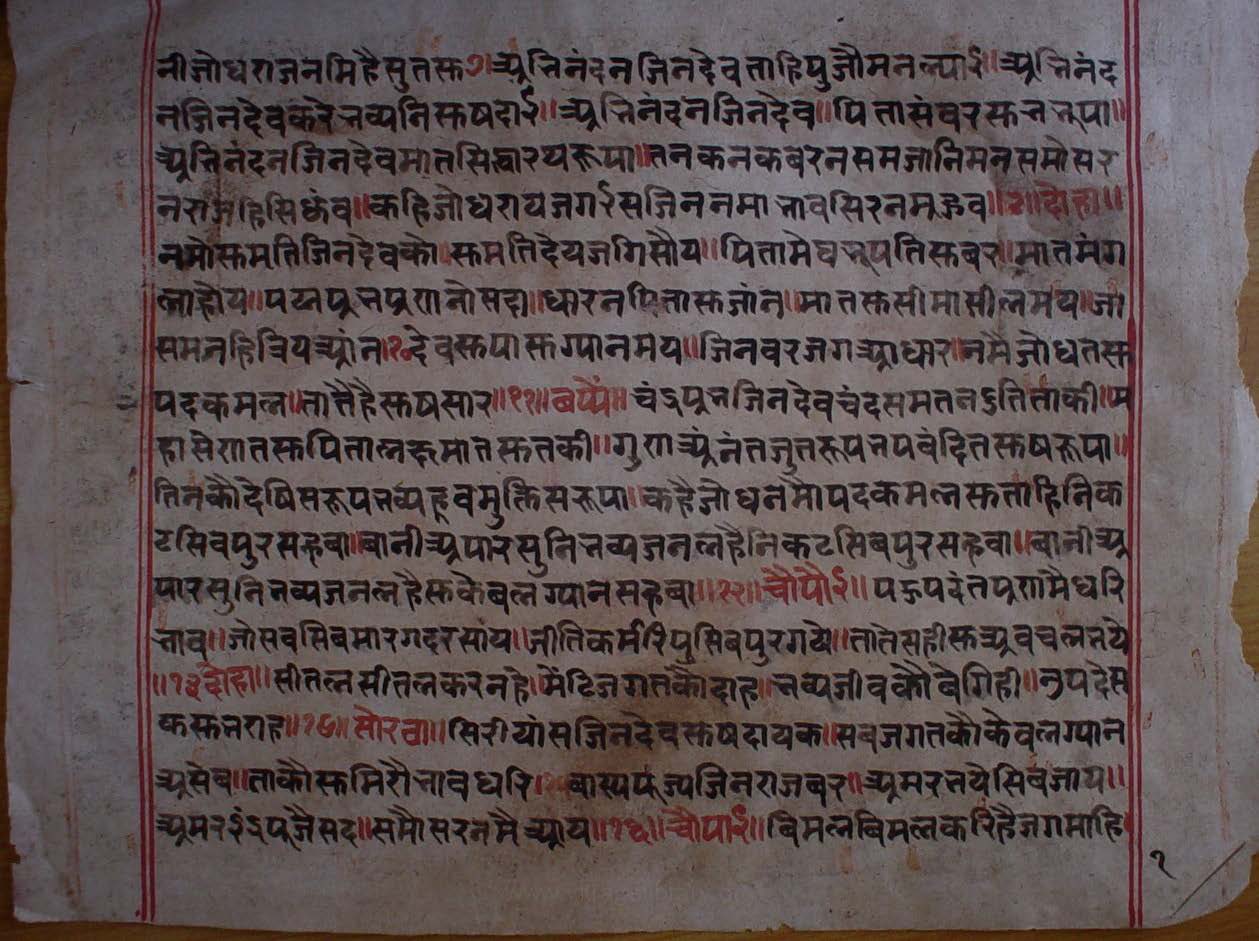 नी जोधराज नमि है सुतस्क ७॥ अभिनंदन जिनदेव ताहि पुजौ मन ल्याई॥ अभिनंद
न जिनदेव करै भव्यनि सुषदाई॥ अभिनंदन जिनदेव॥ पिता संबर सु भूपा॥
अभिनंदन जिनदेव मात सिद्धारथ रूपा॥ तन कनक बरन सम जानि मन समोसर
न राजहि सिधंव॥ कहि जोधराय जगईस जिन नमा भाव सिर न मुझव॥ दोहा॥
नमो सुमति जिनदेव कौ॥ सुमति देय जगि सौय॥ पिता मेघ भूपति सुबर॥ मात मंग
ला होय॥ पद्मपूभ पुरानो सदा॥ धारन पिता सुजांन॥ मात सुसीमा सीलमय॥ जा
सम नहि त्रिय आंन॥ १० देव सुपासु ग्यानमय॥ जिनवर जग आधार॥ नमै जोध तसु
पदकमल॥ तातै है सुषसार॥ ११॥ छप्पै॥ चंद्रपूभ जिनदेव चंद सम तन दुति ताकी॥ म
हासेण तसु पिता लछमा मात सु तकी॥ गुण अनंत जुत रूप भूप वंदित सुषरूपा॥
तिनकौ देषि सरूप भव्य हूव मुक्ति सरूपा॥ कहै जोध नमौ पदकमल सु ताहि निक
ट सिवपुर सहवा॥ बानी अपार सुनि भव्यजन लहै निकट सिबपुर सहवा॥ बानी अ
पार सुनि भव्यजन लहै सु केबल ग्यान सहवा॥ १२॥ चौपौई॥ पहुपदंत पुरणमै धरि
भाव॥ जो सब सिबमारग दरसाय॥ जीति कर्म रिपु सिबपुर गये॥ ताते सही सु अवचल भये
॥ १३ दोहा॥ सीतल सीतल करन है॥ मेंटि जगत कौ दाह॥ भव्य जीव कौ बेगि ही॥ उपदेस
क सु भराह॥ १४॥ सोरठा॥ सिरीयांस जिनदेव सुषदायक॥ सब जगत कौ केवल ग्यान
असेव॥ ताकौ सुमिरौ भाव धरि॥ बास्यपूज्य जिनराज बर॥ अमर भये सिव जाय॥
अमर इंद्र पूजै सद॥ समौसरन मै आय॥ १६॥ चौपाई॥ बिमल बिमल करि है जग माहि
१